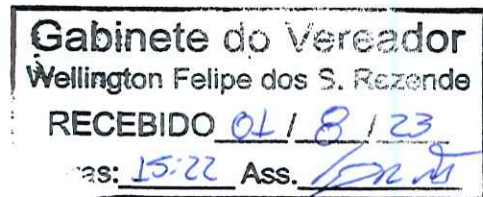 Gabinete do Vereador
Wellington Felipe dos S. Rezende
RECEBIDO 01 / 8 / 23
as: 15:22 Ass.